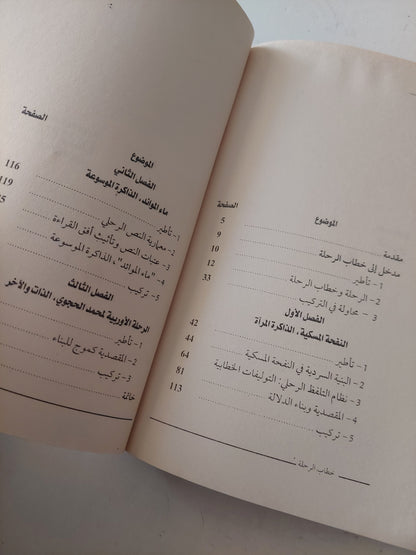 الموضوع
الصفحة
مقدمة
5
مدخل إلى خطاب الرحلة
9
1 - تأطير
10
2 - الرحلة وخطاب الرحلة
12
3 - محاولة في التركيب
33
الفصل الأول
النفحة المسكية، الذاكرة المرآة
1 - تأطير
42
2 - البنية السردية في النفحة المسكية
44
3 - نظام التلفظ الرحلي: التوليفات الخطابية
64
4 - المقصدية وبناء الدلالة
81
5 - تركيب
113
خطاب الرحلة
الموضوع
الصفحة
الفصل الثاني
ماء الموائد، الذاكرة الموسوعة
1 - تأطير
116
2 - معمارية النص الرحلي
119
3 - عتبات النص وتأثيث أفق القراءة
4 - "ماء الموائد"، الذاكرة الموسوعة
5 - تركيب
الفصل الثالث
الرحلة الأوربية لمحمد الحجوي، الذات والآخر
1 - تأطير
2 - المقصدية كموجه للبناء
3 - تركيب
خاتمة